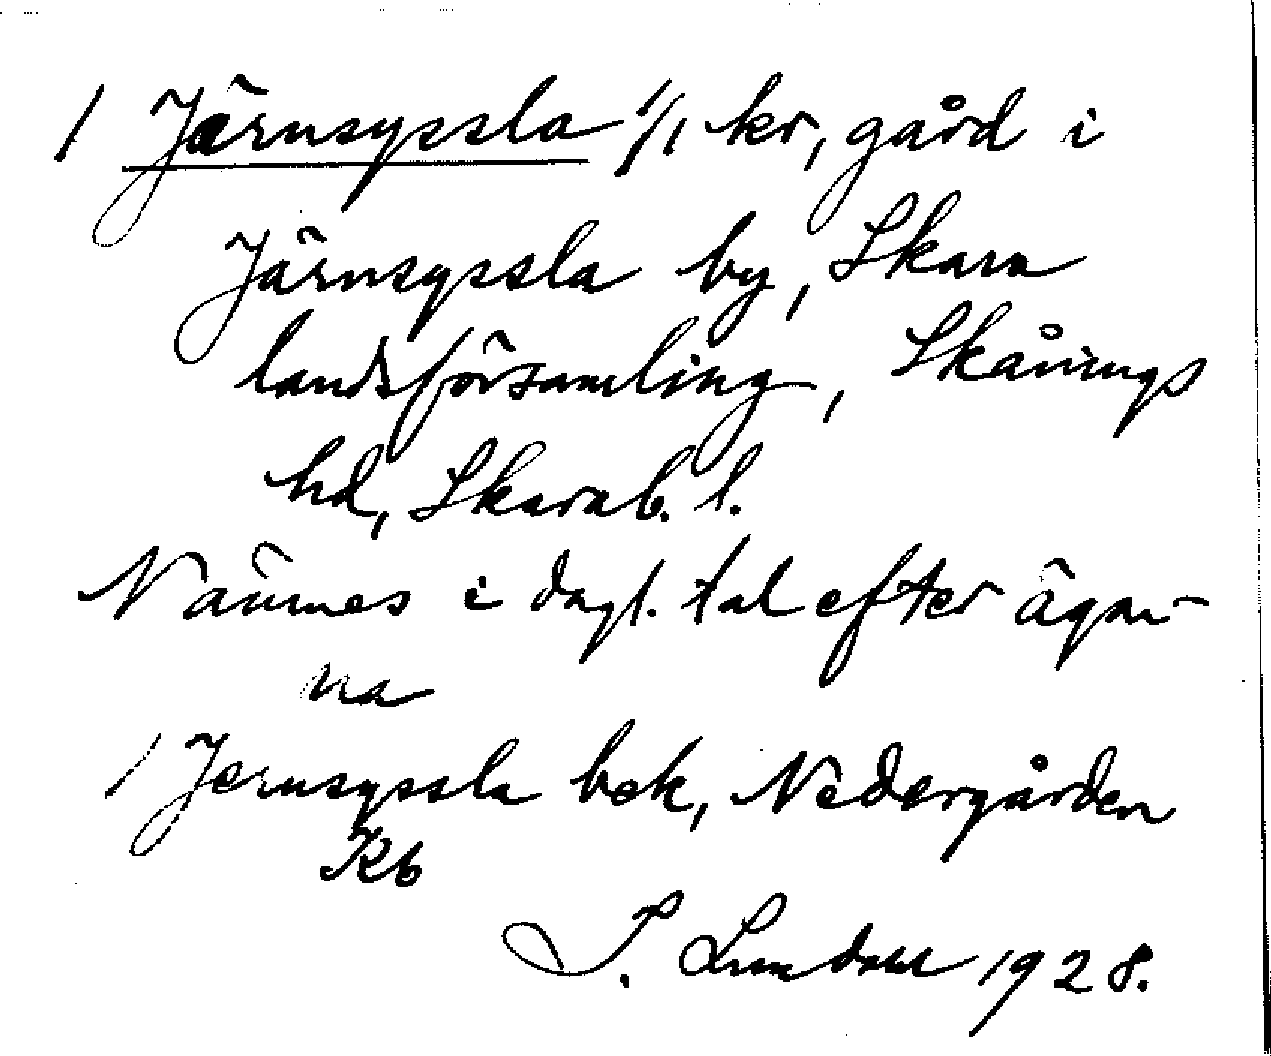 1 Järnsyssla 1/1 kr, gård i
Järnsyssla by, Skara
landsförsamling, Skånings
hd, Skarab. l.
Nämnes i dagl. tal efter ägar-
na
1 Jernsyssla bok, Nedergården
Kb
S. Lundahl 1928.